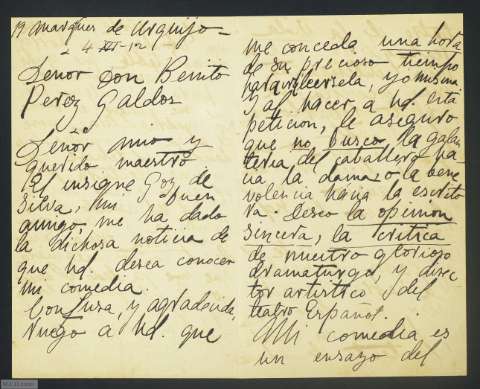 19 Marques de Urquijo –
4 XII-12
Señor Don Benito
Perez Galdos
Señor mio y
querido maestro.
El insigne Goz de
Silva, mi buen
amigo, me ha dado
la dichosa noticia de
que Ud. desea conocer
mi comedia.
Confusa, y agradecida,
ruego a Ud. que
me conceda una hora
de su precioso tiempo
para leersela, yo misma
y al hacer a Ud. esta
peticion, le aseguro
que no busco la galan
teria del caballero ha
cia la dama o la bene
volencia hacia la escrito
ra. Deseo la opinion
sincera, la critica
de nuestro glorioso
dramaturgo, y direc
tor artistico del
teatro Español.
Mi comedia es
un ensayo del